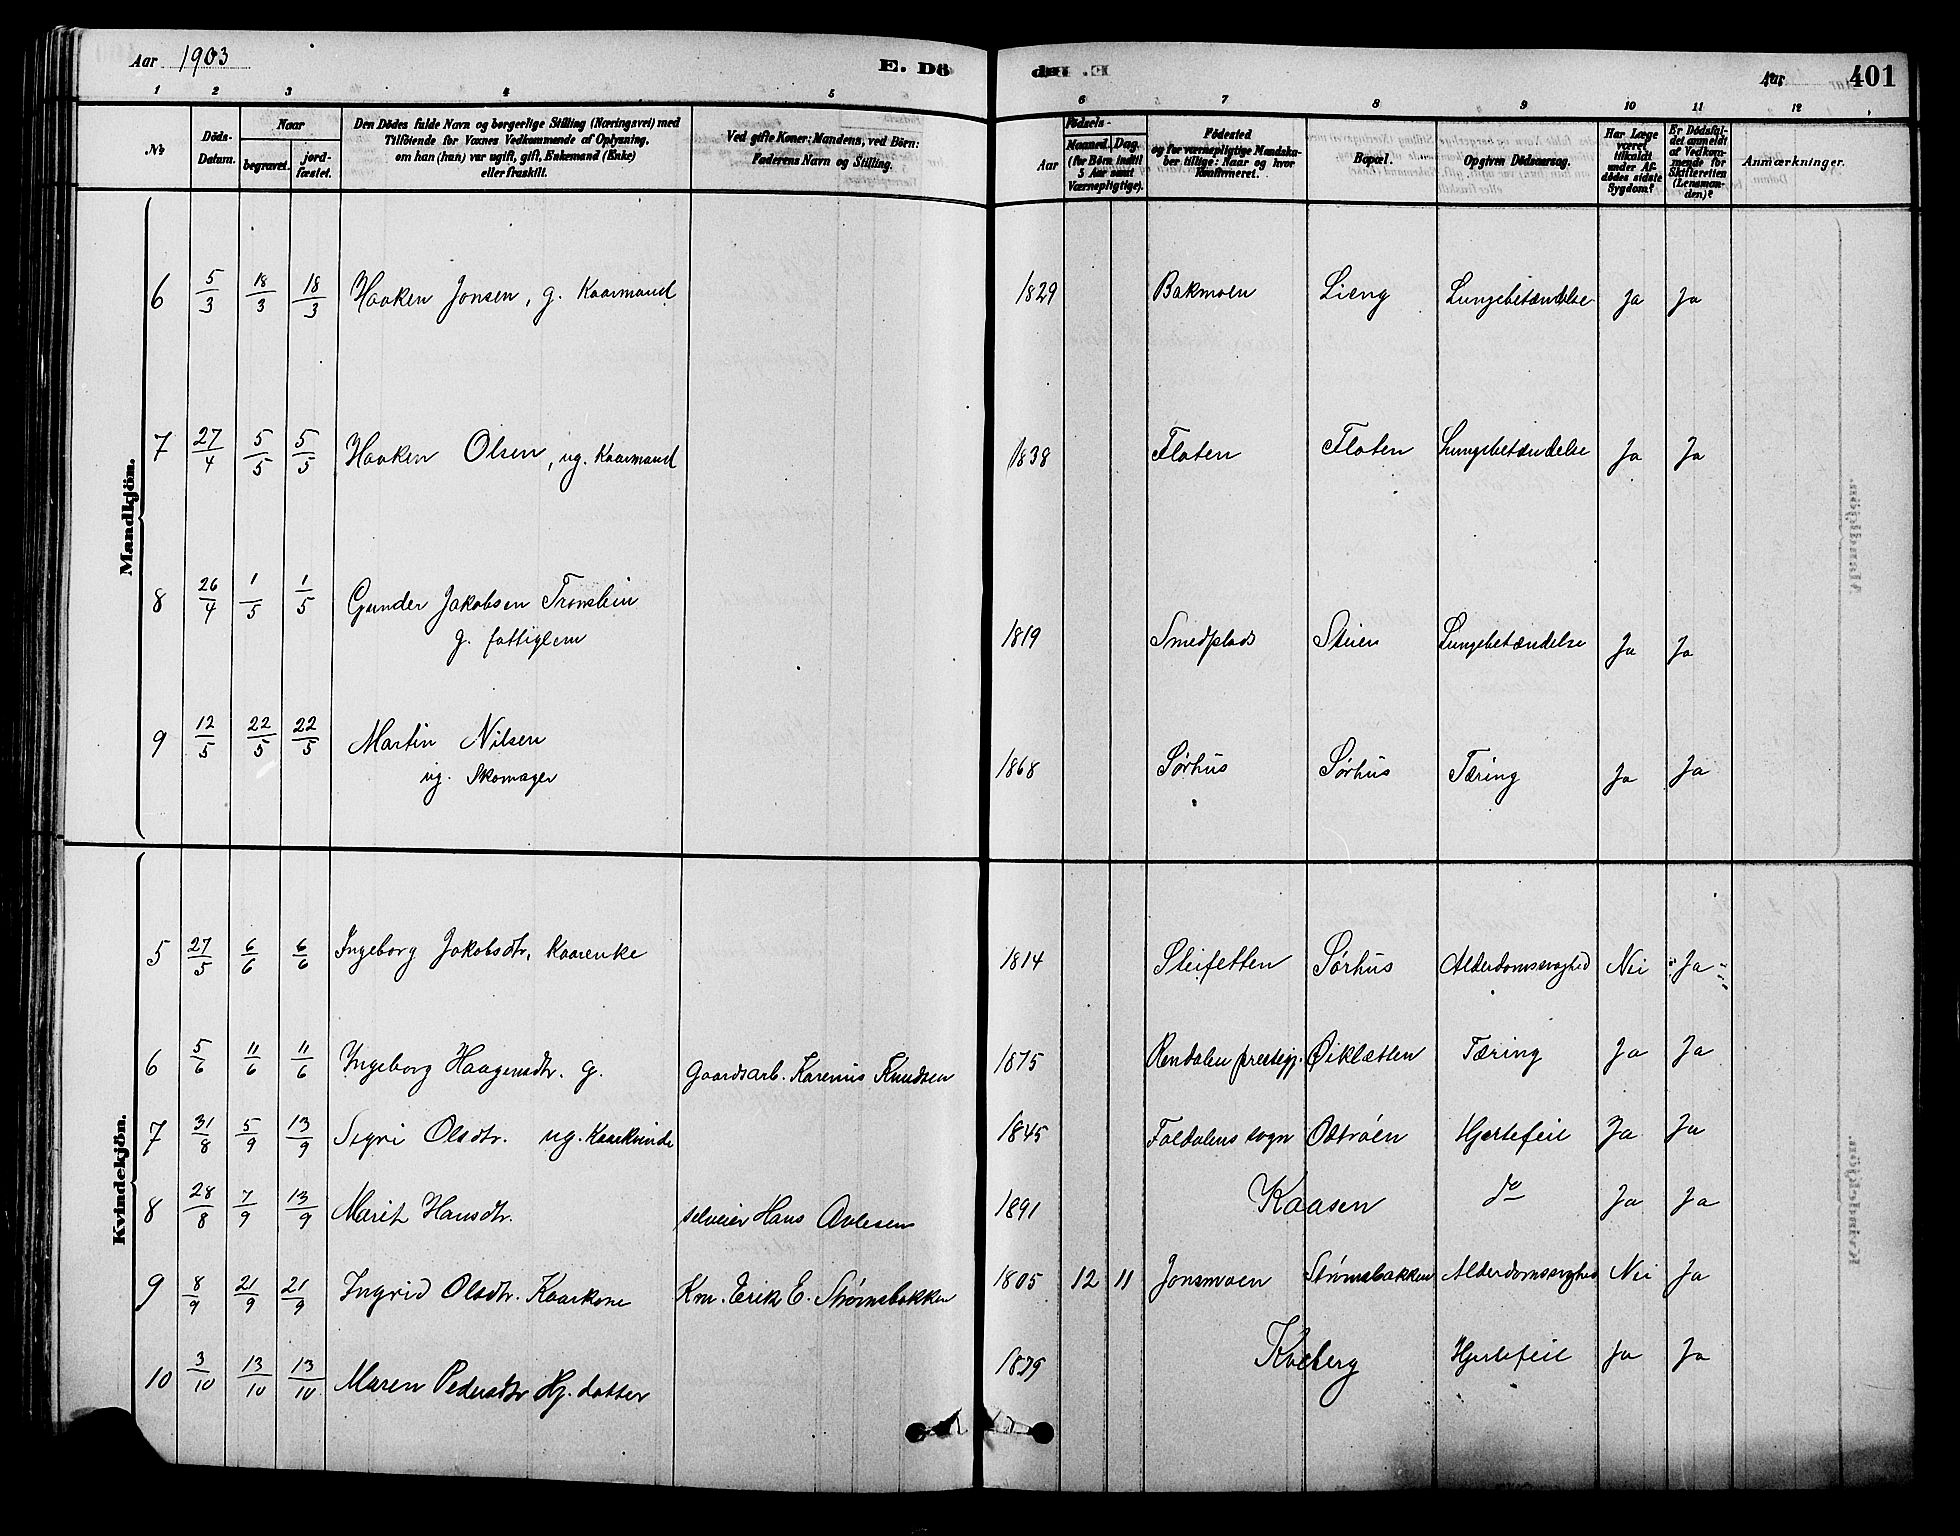 Aar 1903
E. Dö
den E.
Aar
401
1 2 3 4 5 6 7 8 9 10 11 12
№
Döds-Datum.
Naar
begravet.
jordfæstet.
Den Dödes fulde Navn og borgerlige Stilling (Næringsvei) med
Tilföiende for Voxnes Vedkommende af Oplysning,
om han (hun) var ugift, gift, Enkemand (Enke)
eller fraskilt.
Ved gifte Koner: Mandens, ved Börn:
Faderens Navn og Stilling.
Födsels-
Aar
Maaned. Dag.
(for Börn indtil
5 Aar samt
Værnepligtige).
Födested
og for værnepligtige Mandskaber tillige: Naar og hvor
konfirmeret.
Bopæl.
Opgiven Dödsaarsag.
Har Læge
været
tilkaldt
under Afdödes sidste
Sygdom?
Er Dödsfaldet anmeldt
af Vedkommende for
Skifteretten
(Lensmanden)?
Anmærkninger.
Mandkjön.
6 5/3 18/3 18/3 Haaken Jonsen, g. Kaarmand 1829 Bakmoen Lieng Lungebetændelse Ja Ja
7 27/4 5/5 5/5 Haaken Olsen, ug. Kaarmand 1838 Floten Floten Lungebetændelse Ja Ja
8 26/4 1/5 1/5 Gunder Jakobsen Tronslien
g. fattiglem 1819 Smedplads Steien Lungebetændelse Ja Ja
9 12/5 22/5 22/5 Martin Nilsen
ug. Skomager 1868 Sørhus Sørhus Tæring Ja Ja
Kvindekjön.
5 27/5 6/6 6/6 Ingeborg Jakobsdtr, Kaarenke 1814 Steifetten Sørhus Alderdomssvaghed Nei Ja
6 5/6 11/6 11/6 Ingeborg Haagensdtr. g. Gaardsarb. Karenius Knudsen 1875 Rendalen prestegj. Øikletten Tæring Ja Ja
7 31/8 5/9 13/9 Sigri Olsdtr. ug. Kaarkvinde 1845 Foldalens sogn Odtrøen Hjertefeil Ja Ja
8 28/8 7/9 13/9 Marit Hansdtr. selveier Hans Avlesen 1891 Kaasen do Ja Ja
9 8/9 21/9 21/9 Ingrid Olsdtr. Kaarkone Km. Erik E. Strømsbakken 1805 12 11 Jonsmoen Strømsbakken Alderdomssvaghed Nei Ja
10 3/10 13/10 13/10 Maren Pedersdtr Hj. datter 1879 Kveberg Hjertefeil Ja Ja